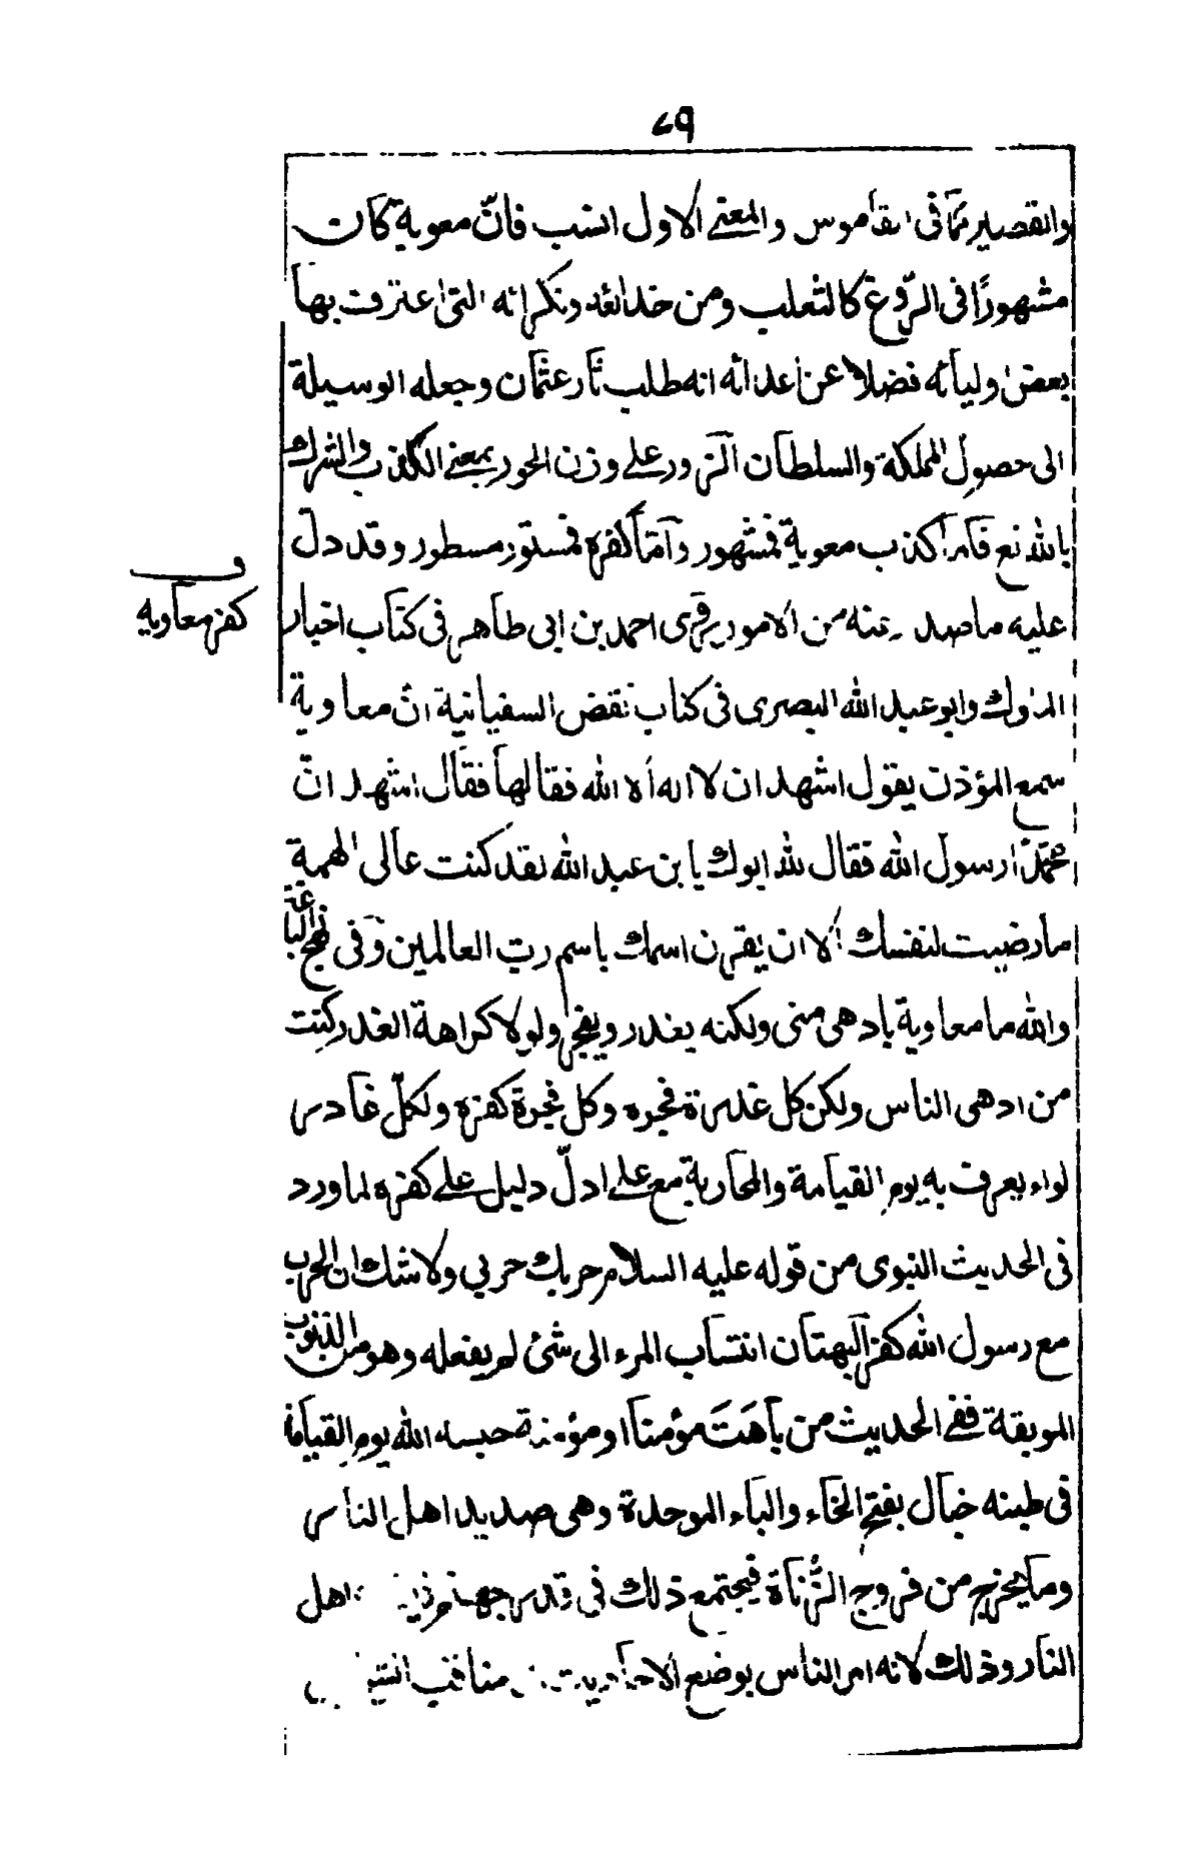 ٤٩
والقصير كما فى القاموس والمعنى الاول انسب فانّ معوية كان
مشهورًا فى الرّوغ كالثعلب ومن خدائعه ونكراته التى اعترفت بها
بعض اوليائه فضلا عن اعدائه انه طلب ثار عثمان وجعله الوسيلة
الى حصول المملكة والسلطان الزور على وزن الحور بمعنى الكذب والشرك
بالله تع فامّا كذب معوية فمشهور وامّا كفره فمستور مسطور وقد دلّ
عليه ما صدر عنه من الامور فروى احمد بن ابى طاهر فى كتاب اخبار
الملوك وابو عبد الله البصرى فى كتاب نقض السفيانية انّ معاوية
سمع المؤذن يقول اشهد ان لا اله الا الله فقالها فقال اشهد انّ
محمّدًا رسول الله فقال لله ابوك يا بن عبد الله لقد كنت عالى الهمية
ما رضيت لنفسك الا ان يقرن اسمك باسم ربّ العالمين وفى نهج البلاغة
والله ما معاوية بادهى منى ولكنه يغدر ويفجر ولولا كراهة الغدر كنت
من ادهى الناس ولكن كل غدرة فجره وكل فجرة كفره ولكلّ غادر
لواء يعرف به يوم القيامة والمحاربة مع على ادلّ دليل على كفره لما ورد
فى الحديث النبوى من قوله عليه السلام حربك حربي ولا شك ان الحرب
مع رسول الله كفر البهتان انتساب المرء الى شئ لم يفعله وهو من الذنوب
الموبقة ففى الحديث من باهَتَ مؤمنا او مؤمنة حبسه الله يوم القيامة
فى طينه خبال بفتح الخاء والباء الموحدة وهى صديد اهل النار
وما يخرج من فروج الزُّناة فيجتمع ذلك فى قدر جهنم اهل
النار وذلك لانه امر الناس بوضع الاحاديث مناقب
و
كفر معاويه